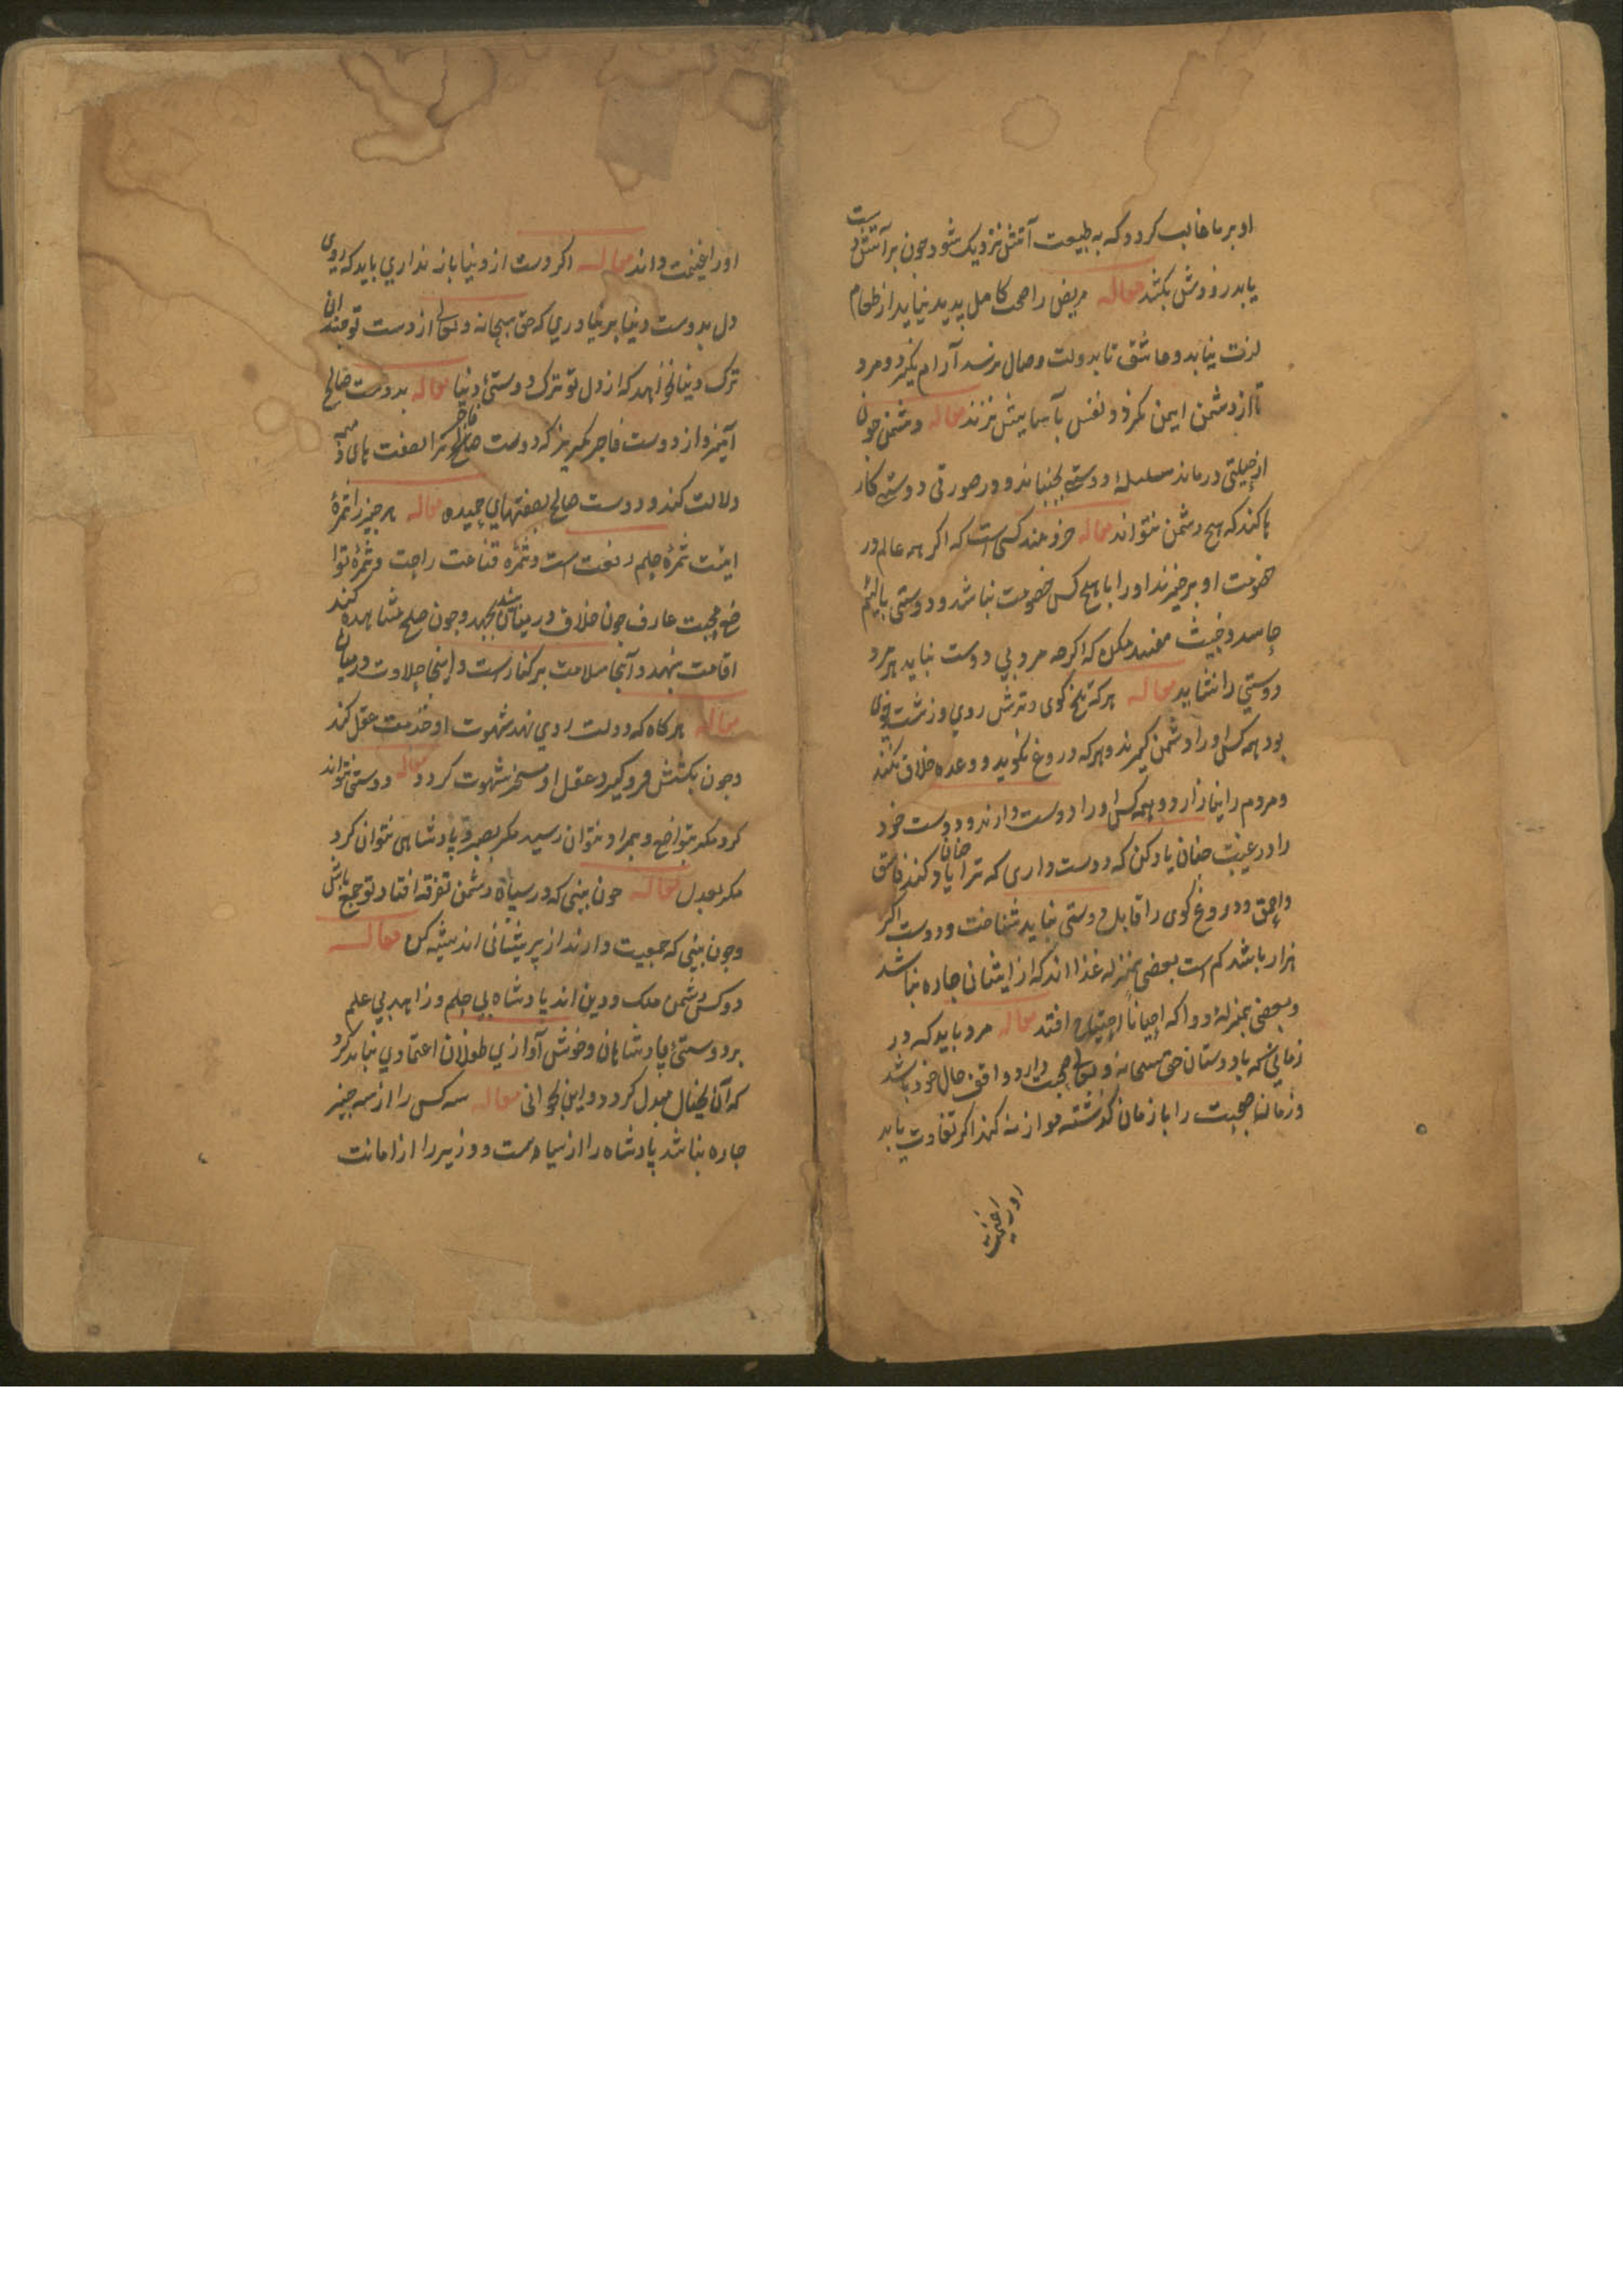 او بر ما غالب کردد که به طبیعت آتش نزدیک شود چون بر آتش دست
یابد زودش بکشد مقاله مریض را صحت کامل پدید نیاید از طعام
لذت نیابد و عاشق تا بدولت وصال نرسد آرام نکیرد و مرد
تا از دشمن ایمن نکردد نفس بآسایش نزند مقاله دشمن چون
از حیلتی درماند سلسلهٔ دوستی بجنباند و در صورتی دوستی کار
ها کند که هیچ دشمن نتواند مقاله خردمند کسی است که اکر همه عالم در
خصومت او برخیزند او را با هیچ کس خصومت نباشد و دوستی با لئیم
حاسد و خبیث مفسد مکن که اکرچه مرد بی دوست نباید هر مرد
دوستی را نشاید مقاله هر که تلخ کوی و ترش روی و زشت خوی
بود همه کس او را دشمن کیرند و هر که دروغ نکوید و وعده خلاف نکند
و مردم را نیازارد و همه کس او را دوست دارند و دوست خود
را در غیبت چنان یاد کن که دوست داری که ترا چنان یاد کند فاسق
و احمق و دروغ کوی را قابل دوستی نباید شناخت و دوست اکر
هزار باشد کم است بعضی بمنزله غذا اند که از ایشان چاره نباشد
و بعضی بمنزلهٔ دوا که احیاناً احتیاج افتد مقاله مرد باید که در
زمانی که با دوستان حق سبحانه و تعالی صحبت دارد واقف حال خود باشد
و زمان صحبت را با زمان کذشته موازنه کند اکر تفاوت یابد
اورا غنیمت
اورا غنیمت داند مقاله اکر دست از دنیا باز نداری باید که روی
دل بدوست دنیا بر نیاوری که حق سبحانه و تعالی از دست تو چندان
ترک دنیا نخواهد که از دل تو ترک دوستیٔ دنیا مقاله بدوست صالح
آمیز و از دوست فاجر بکریز که دوست فاجر ترا بصفت های ذمیمه
دلالت کند و دوست صالح بصفتهای حمیده مقاله هر چیز را ثمرهٔ
ایست ثمرهٔ حلم رفعت است و ثمرهٔ قناعت راحت و ثمرهٔ توا
ضع محبت عارف چون خلاف در میان بیند بجهد و چون صلح مشاهده کند
اقامت بنهد و آنجا سلامت بر کنار است و اینجا حلاوت در میان
مقاله هر کاه که دولت روی نهد شهوت او خدمت عقل کند
و چون بکشش فرو کیرد عقل او مسخر شهوت کردد مقاله دوستی نتواند
کرد مکر بتواضع و بمراد نتوان رسید مکر بصبر و پادشاهی نتوان کرد
مکر بعدل مقاله چون بینی که در سپاه دشمن تفرقه افتاد تو جمع باش
و چون بینی که جمعیت دارند از پریشانی اندیشه کن مقاله
دو کس دشمن ملک و دین اند پادشاه بی حلم و زاهد بی علم
بر دوستیٔ پادشاهان و خوش آوازی طفلان اعتمادی نباید کرد
که آن بخیال مبدل کردد و این بخوابی مقاله سه کس را از سه چیز
چاره نباشد پادشاه را از سیاست و وزیر را از امانت